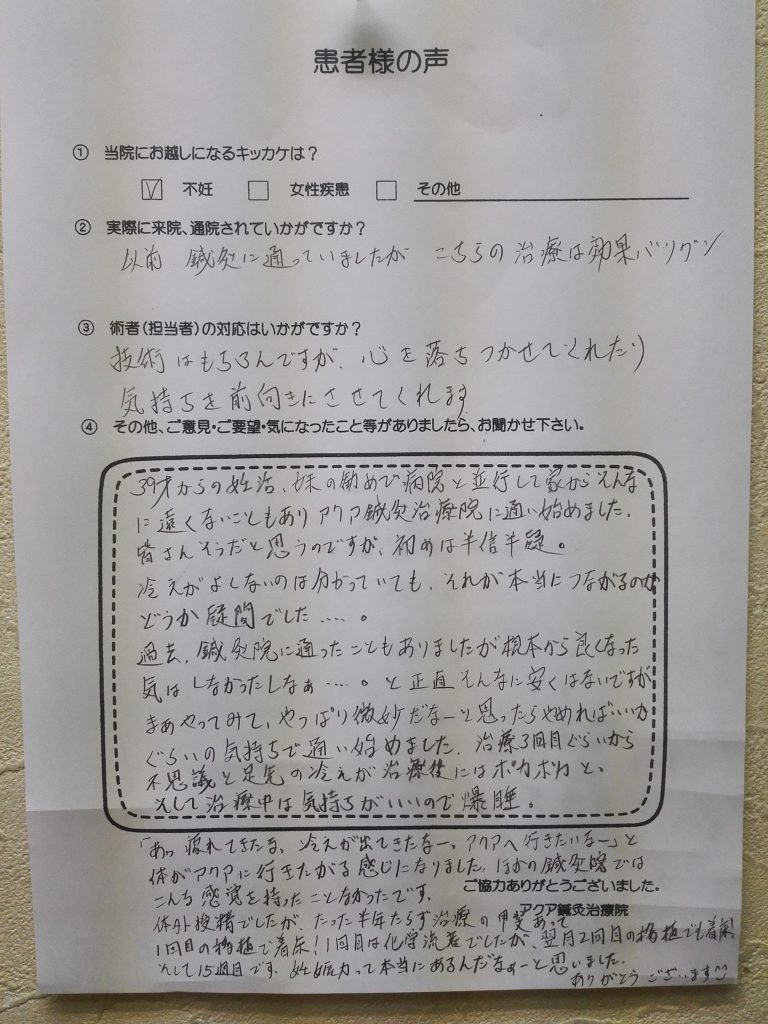 患者様の声
① 当院にお越しになるキッカケは？
☑ 不妊 □ 女性疾患 □ その他
② 実際に来院、通院されていかがですか？
以前 鍼灸に通っていましたが こちらの治療は効果バツグン
③ 術者（担当者）の対応はいかがですか？
技術はもちろんですが、心を落ちつかせてくれたり
気持ちを前向きにさせてくれます
④ その他、ご意見・ご要望・気になったこと等がありましたら、お聞かせ下さい。
39才からの妊活、妹の勧めで病院と並行して家からそんな
に遠くないこともありアクア鍼灸治療院に通い始めました。
皆さんそうだと思うのですが、初めは半信半疑。
冷えがよくないのは分かっていても、それが本当につながるのか
どうか疑問でした……。
過去、鍼灸院に通ったこともありましたが根本から良くなった
気はしなかったしなぁ……。と正直そんなに安くはないですが
まぁやってみて、やっぱり微妙だなーと思ったらやめればいいか
ぐらいの気持ちで通い始めました。治療3回目ぐらいから
不思議と足先の冷えが治療後にはポカポカと、
そして治療中は気持ちがいいので爆睡。
「あっ疲れてきたな、冷えが出てきたなー。アクアへ行きたいなー」と
体がアクアに行きたがる感じになりました。ほかの鍼灸院では
こんな感覚を持ったことなかったです。
ご協力ありがとうございました。
アクア鍼灸治療院
体外授精でしたが、たった半年たらず治療の甲斐あって
1回目の移植で着床！1回目は化学流産でしたが、翌月2回目の移植でも着床！
そして15週目です。妊娠力って本当にあるんだなぁーと思いました。
ありがとうございます